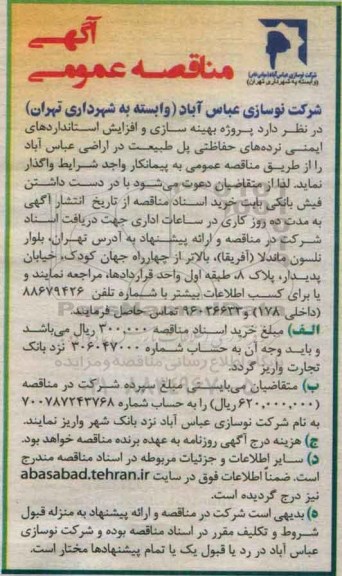 آگهی
مناقصه عمومی
شرکت نوسازی عباس آباد (سهامی خاص)
(وابسته به شهرداری تهران)
شرکت نوسازی عباس آباد (وابسته به شهرداری تهران)
در نظر دارد پروژه بهینه سازی و افزایش استانداردهای
ایمنی نرده‌های حفاظتی پل طبیعت در اراضی عباس آباد
را از طریق مناقصه عمومی به پیمانکار واجد شرایط واگذار
نماید. لذا از متقاضیان دعوت می‌شود با در دست داشتن
فیش بانکی بابت خرید اسناد مناقصه از تاریخ انتشار آگهی
به مدت ده روز کاری در ساعات اداری جهت دریافت اسناد
شرکت در مناقصه و ارائه پیشنهاد به آدرس تهران، بلوار
نلسون ماندلا (آفریقا)، بالاتر از چهارراه جهان کودک، خیابان
پدیدار، پلاک ۸، طبقه اول واحد قراردادها، مراجعه نمایند و
یا برای کسب اطلاعات بیشتر با شماره تلفن ۸۸۶۷۹۴۲۶
(داخلی ۱۷۸) و ۹۶۰۳۶۶۳۳ تماس حاصل فرمایند.
الف) مبلغ خرید اسناد مناقصه ۳۰۰,۰۰۰ ریال می‌باشد
و باید وجه آن به حساب شماره ۳۰۶۰۴۷۰۰۰ نزد بانک
تجارت واریز گردد.
ب) متقاضیان می‌بایستی مبلغ سپرده شرکت در مناقصه
(۶۲۰,۰۰۰,۰۰۰ ریال) را به حساب شماره ۷۰۰۷۸۷۲۴۳۷۶۸
به نام شرکت نوسازی عباس آباد نزد بانک شهر واریز نمایند.
ج) هزینه درج آگهی روزنامه به عهده برنده مناقصه خواهد بود.
د) سایر اطلاعات و جزئیات مربوطه در اسناد مناقصه مندرج
است. ضمناً اطلاعات فوق در سایت abasabad.tehran.ir
نیز درج گردیده است.
ه) بدیهی است شرکت در مناقصه و ارائه پیشنهاد به منزله قبول
شروط و تکلیف مقرر در اسناد مناقصه بوده و شرکت نوسازی
عباس آباد در رد یا قبول یک یا تمام پیشنهادها مختار است.